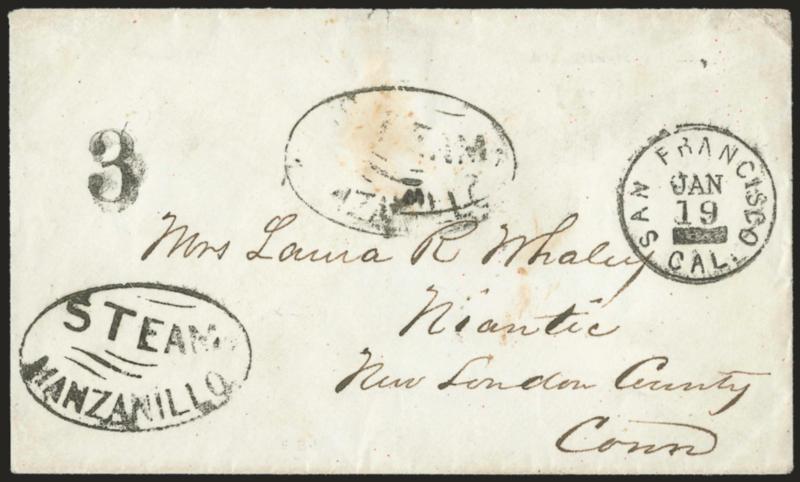 3
STEAM
MANZANILLO
SAN FRANCISCO
JAN
19
CAL.
Mrs Laura R Whaley
Niantic
New London County
Conn
STEAM
MANZANILLO